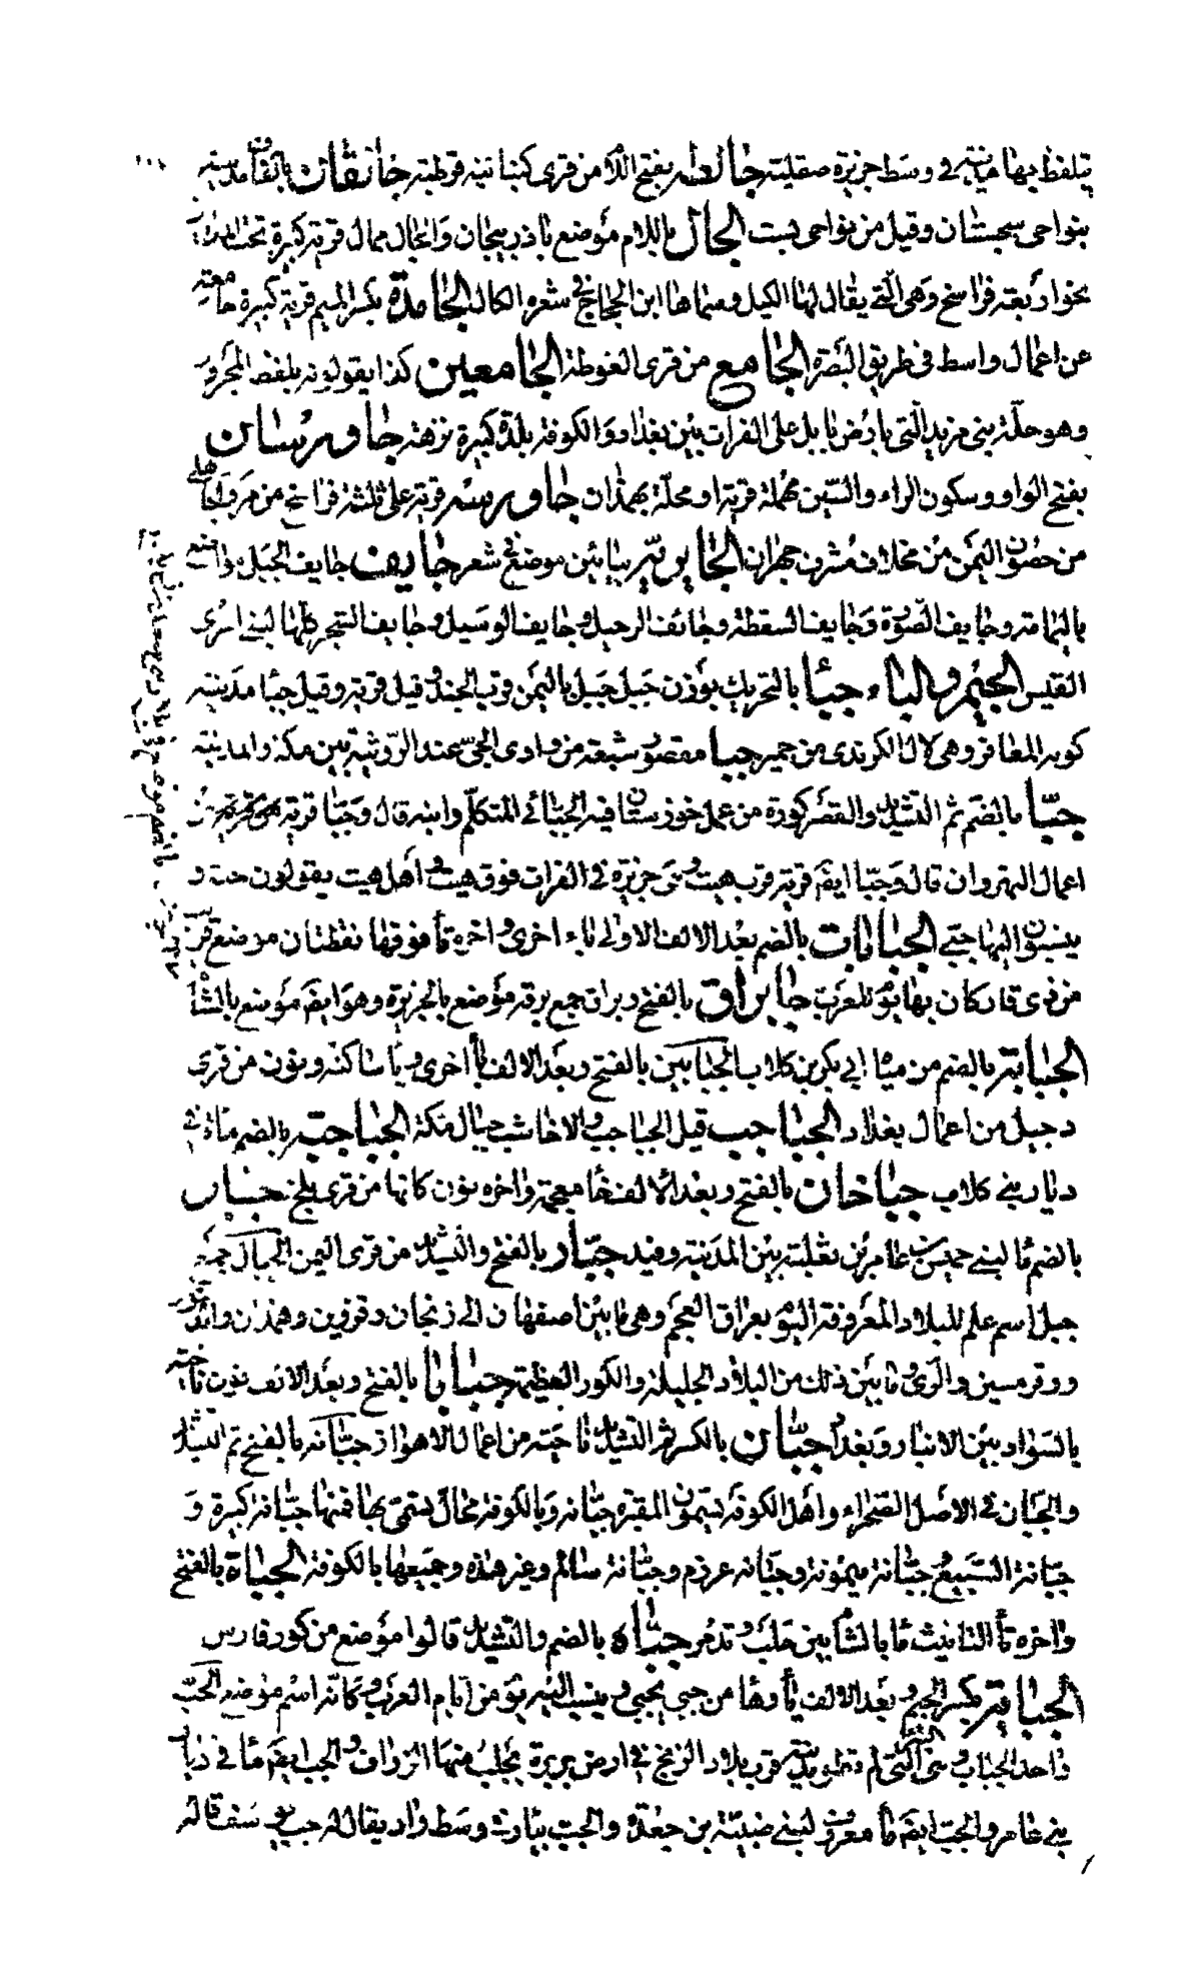 يتلفظ بها مدينة في وسط جزيرة صقلية جالطه بفتح اللام من قرى كنبانية قرطبة جانقان بالقاف مدينة
بنواحى سجستان وقيل من نواحى بست الجال باللام موضع باذربيجان والجال ممال قرية كبيرة تحت المداين
بنحو اربعة فراسخ وهى التى يقال لها الكيل وسماها ابن الحجاج فى شعره الكال الجامدة بكسر الميم قرية كبيرة جامعة
عن اعمال واسط فى طريق البصرة الجامع من قرى الغوطة الجامعين كذا يقولونه بلفظ المجرور
وهو حلة بنى مزيد التى بارض بابل على الفرات بين بغداد والكوفة بلدة كبيرة نزهة جاورسان
بفتح الواو وسكون الراء والسين مهملة قرية او محلة بهمذان جاورسه قرية على ثلثة فراسخ من مرو الجاهلى
من حصون اليمن من مخلاف مشرف جهران الجايرية بيائين موضع فى شعر جايف جايف الجبل واضع
باليمامة وجايف الضوة وجايف السقطة وجائف الرحيل وجايف الوسيل وجايف الشجر كلها لبنى امرئ
القيس الجيم والباء جبأ بالتحريك بوزن جبل جبل باليمن قرب الجند وقيل قرية وقيل جبأ مدينة
كورة المعافر وهى لال الكرندى من حمير جبا مقصور شعبة من وادى الجى عند الرويثة بين مكة والمدينة
جبّا بالضم ثم التشديد والقصر كورة من عمل خوزستان فيه الجبائى المتكلم وابنه قال وجبا قرية من
اعمال النهروان قال وجبا ايضا قرية قرب هيت وجبى جزيرة فى الفرات فوق هيت واهل هيت يقولون
ينسبون اليها جبى الجبابات بالضم بعد الالف الاولى باء اخرى واخره تا فوقها نقطتان موضع قريب
من ذى قار كان بها يوم للعرب جابراق بالفتح وبراق جمع برقة موضع بالجزيرة وهو ايضا موضع بالشام
الجبابة بالضم من مياه ابى بكر بن كلاب الجبابين بالفتح وبعد الالف با اخرى ويا ساكنة ونون من قرى
دجيل من اعمال بغداد الجباجب قيل الجباجب والاخاشب جبال مكة الجباجبة بالضم ماء فى
ديار بنى كلاب جباخان بالفتح وبعد الالف خا معجمة واخره نون كانها من قرى بلخ جبار
بالضم ما لبنى حميس بن عامر بن ثعلبة بين المدينة وفيد جبّار بالفتح والتشديد من قرى اليمن الجبال جمع
جبل اسم علم للبلاد المعروفة اليوم بعراق العجم وهى ما بين اصفهان الى زنجان وقزوين وهمذان والدينور
وقرمسين والرى وما بين ذلك من البلاد الجليلة والكور العظيمة جبانا بالفتح وبعد الالف نون ناحية
بالسواد بين الانبار وبغداد جبّان بالكسر ثم التشديد ناحية من اعمال الاهواز جبّانه بالفتح ثم التشديد
والجبان فى الاصل الصحراء واهل الكوفة يسمون المقبرة جبانة وبالكوفة محال تسمى بها فمنها جبانة كبيرة و
جبانة السبيع وجبانة ميمونة وجبانة عرزم وجبانة سالم وغير هذه وجميعها بالكوفة الجباة بالفتح
واخره تا التانيث ما بالشام بين حلب وتدمر جبّاه بالضم والتشديد قالوا موضع من كور فارس
الجباية بكسر الجيم وبعد الالف يا وها من جبى يجبى وينسب اليه يوم من ايام العرب وكانه اسم موضع الجب
واحد الجباب وهى البئر التى لم تطو مدينة قرب بلاد الزنج فى ارض بربرة يجلب منها الزراف والجب ايضا ما فى ديار
بنى عامر والجب ايضا ما معروف لبنى ضبينة بن جعدة والجب بيارث وسط واد يقال له جب يوسف قاله